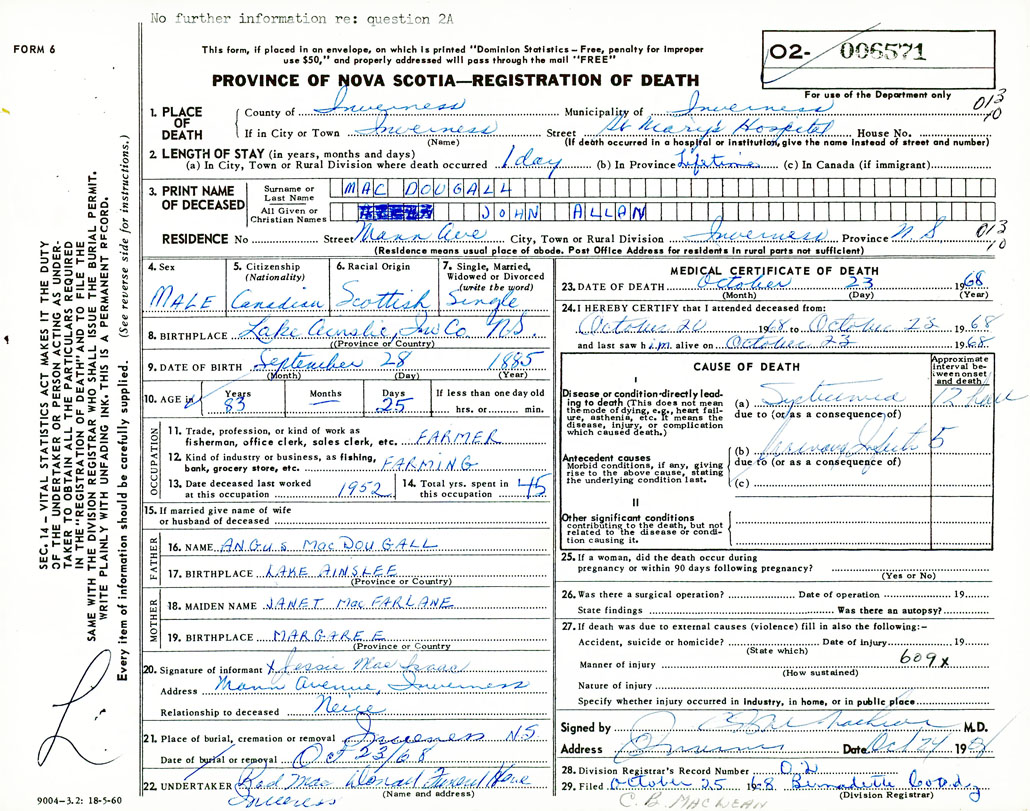 No further information re: question 2A
FORM 6
This form, if placed in an envelope, on which is printed "Dominion Statistics – Free, penalty for improper
use $50," and properly addressed will pass through the mail "FREE"
PROVINCE OF NOVA SCOTIA—REGISTRATION OF DEATH
02- 006571
For use of the Department only
013
10
1. PLACE OF DEATH
County of Inverness Municipality of Inverness
If in City or Town Inverness Street St Mary's Hospital House No.
(Name) (If death occurred in a hospital or institution, give the name instead of street and number)
2. LENGTH OF STAY (in years, months and days)
(a) In City, Town or Rural Division where death occurred 1 day (b) In Province Lifetime (c) In Canada (if immigrant)
3. PRINT NAME OF DECEASED
Surname or Last Name MAC DOUGALL
All Given or Christian Names JOHN ALLAN
RESIDENCE No Street Mann Ave City, Town or Rural Division Inverness Province N S
013
10
(Residence means usual place of abode. Post Office Address for residents in rural parts not sufficient)
4. Sex MALE
5. Citizenship (Nationality) Canadian
6. Racial Origin Scottish
7. Single, Married, Widowed or Divorced (write the word) Single
8. BIRTHPLACE Lake Ainslie, Inv Co. N.S.
(Province or Country)
9. DATE OF BIRTH September 28 1885
(Month) (Day) (Year)
10. AGE in Years 83 Months Days 25 If less than one day old
hrs. or min.
OCCUPATION
11. Trade, profession, or kind of work as
fisherman, office clerk, sales clerk, etc. FARMER
12. Kind of industry or business, as fishing,
bank, grocery store, etc. FARMING
13. Date deceased last worked
at this occupation 1952
14. Total yrs. spent in
this occupation 45
15. If married give name of wife
or husband of deceased
FATHER
16. NAME ANGUS MACDOUGALL
17. BIRTHPLACE LAKE AINSLEE
(Province or Country)
MOTHER
18. MAIDEN NAME JANET MACFARLANE
19. BIRTHPLACE MARGAREE
(Province or Country
20. Signature of informant x Jessie MacIsaac
Address Mann Avenue, Inverness
Relationship to deceased Neice
21. Place of burial, cremation or removal Inverness N.S
Date of burial or removal Oct 23/68
22. UNDERTAKER Rod Mac Donald Funeral Home
(Name and address)
Inverness
9004–3.2: 18-5-60
MEDICAL CERTIFICATE OF DEATH
23. DATE OF DEATH October 23 1968
(Month) (Day) (Year)
24. I HEREBY CERTIFY that I attended deceased from:
October 20 1968 to October 23 1968
and last saw him alive on October 23 1968
CAUSE OF DEATH
Approximate interval between onset and death
I
Disease or condition directly leading to death (This does not mean the mode of dying, e.g., heart failure, asthenia, etc. It means the disease, injury, or complication which caused death.)
(a) Septicemia 12 hours
due to (or as a consequence of)
(b) 5
due to (or as a consequence of)
(c)
Antecedent causes
Morbid conditions, if any, giving rise to the above cause, stating the underlying condition last.
II
Other significant conditions
contributing to the death, but not related to the disease or condition causing it.
25. If a woman, did the death occur during
pregnancy or within 90 days following pregnancy?
(Yes or No)
26. Was there a surgical operation? Date of operation 19
State findings Was there an autopsy?
27. If death was due to external causes (violence) fill in also the following:–
Accident, suicide or homicide? Date of injury 19
(State which)
Manner of injury 609x
(How sustained)
Nature of injury
Specify whether injury occurred in industry, in home, or in public place
Signed by M.D.
Address Inverness Date Oct 24 19
28. Division Registrar's Record Number 02
29. Filed October 25 1968 Bernadette
(Division Registrar)
C. B. MACLEAN
SEC. 14 – VITAL STATISTICS ACT MAKES IT THE DUTY
OF THE UNDERTAKER OR PERSON ACTING AS UNDER-
TAKER TO OBTAIN ALL THE PARTICULARS REQUIRED
IN THE "REGISTRATION OF DEATH" AND TO FILE THE
SAME WITH THE DIVISION REGISTRAR WHO SHALL ISSUE THE BURIAL PERMIT.
WRITE PLAINLY WITH UNFADING INK. THIS IS A PERMANENT RECORD.
Every item of information should be carefully supplied. (See reverse side for instructions.)